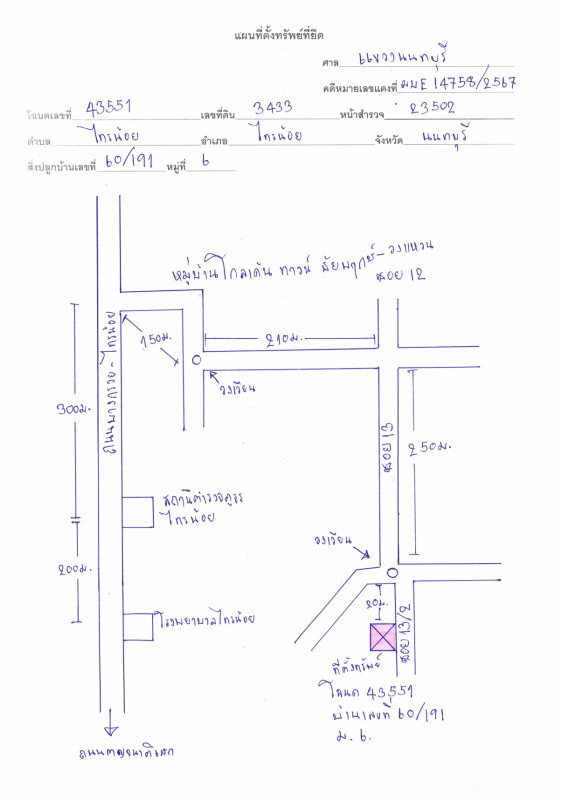 แผนที่ตั้งทรัพย์ที่ยึด
ศาล แขวงนนทบุรี
คดีหมายเลขแดงที่ ผบE 14758/2567
โฉนดเลขที่ 43551 เลขที่ดิน 3433 หน้าสำรวจ 23502
ตำบล ไทรน้อย อำเภอ ไทรน้อย จังหวัด นนทบุรี
สิ่งปลูกบ้านเลขที่ 60/191 หมู่ที่ 6
หมู่บ้านโกลเด้น ทาวน์ ชัยพฤกษ์-วงแหวน
ซอย 12
ถนนบางกรวย-ไทรน้อย
150ม.
210ม.
วงเวียน
300ม.
ซอย 13
250ม.
สถานีตำรวจภูธร
ไทรน้อย
วงเวียน
200ม.
20ม.
โรงพยาบาลไทรน้อย
ซอย 13/2
ที่ตั้งทรัพย์
โฉนด 43551
บ้านเลขที่ 60/191
ม. 6.
ถนนกาญจนาภิเษก